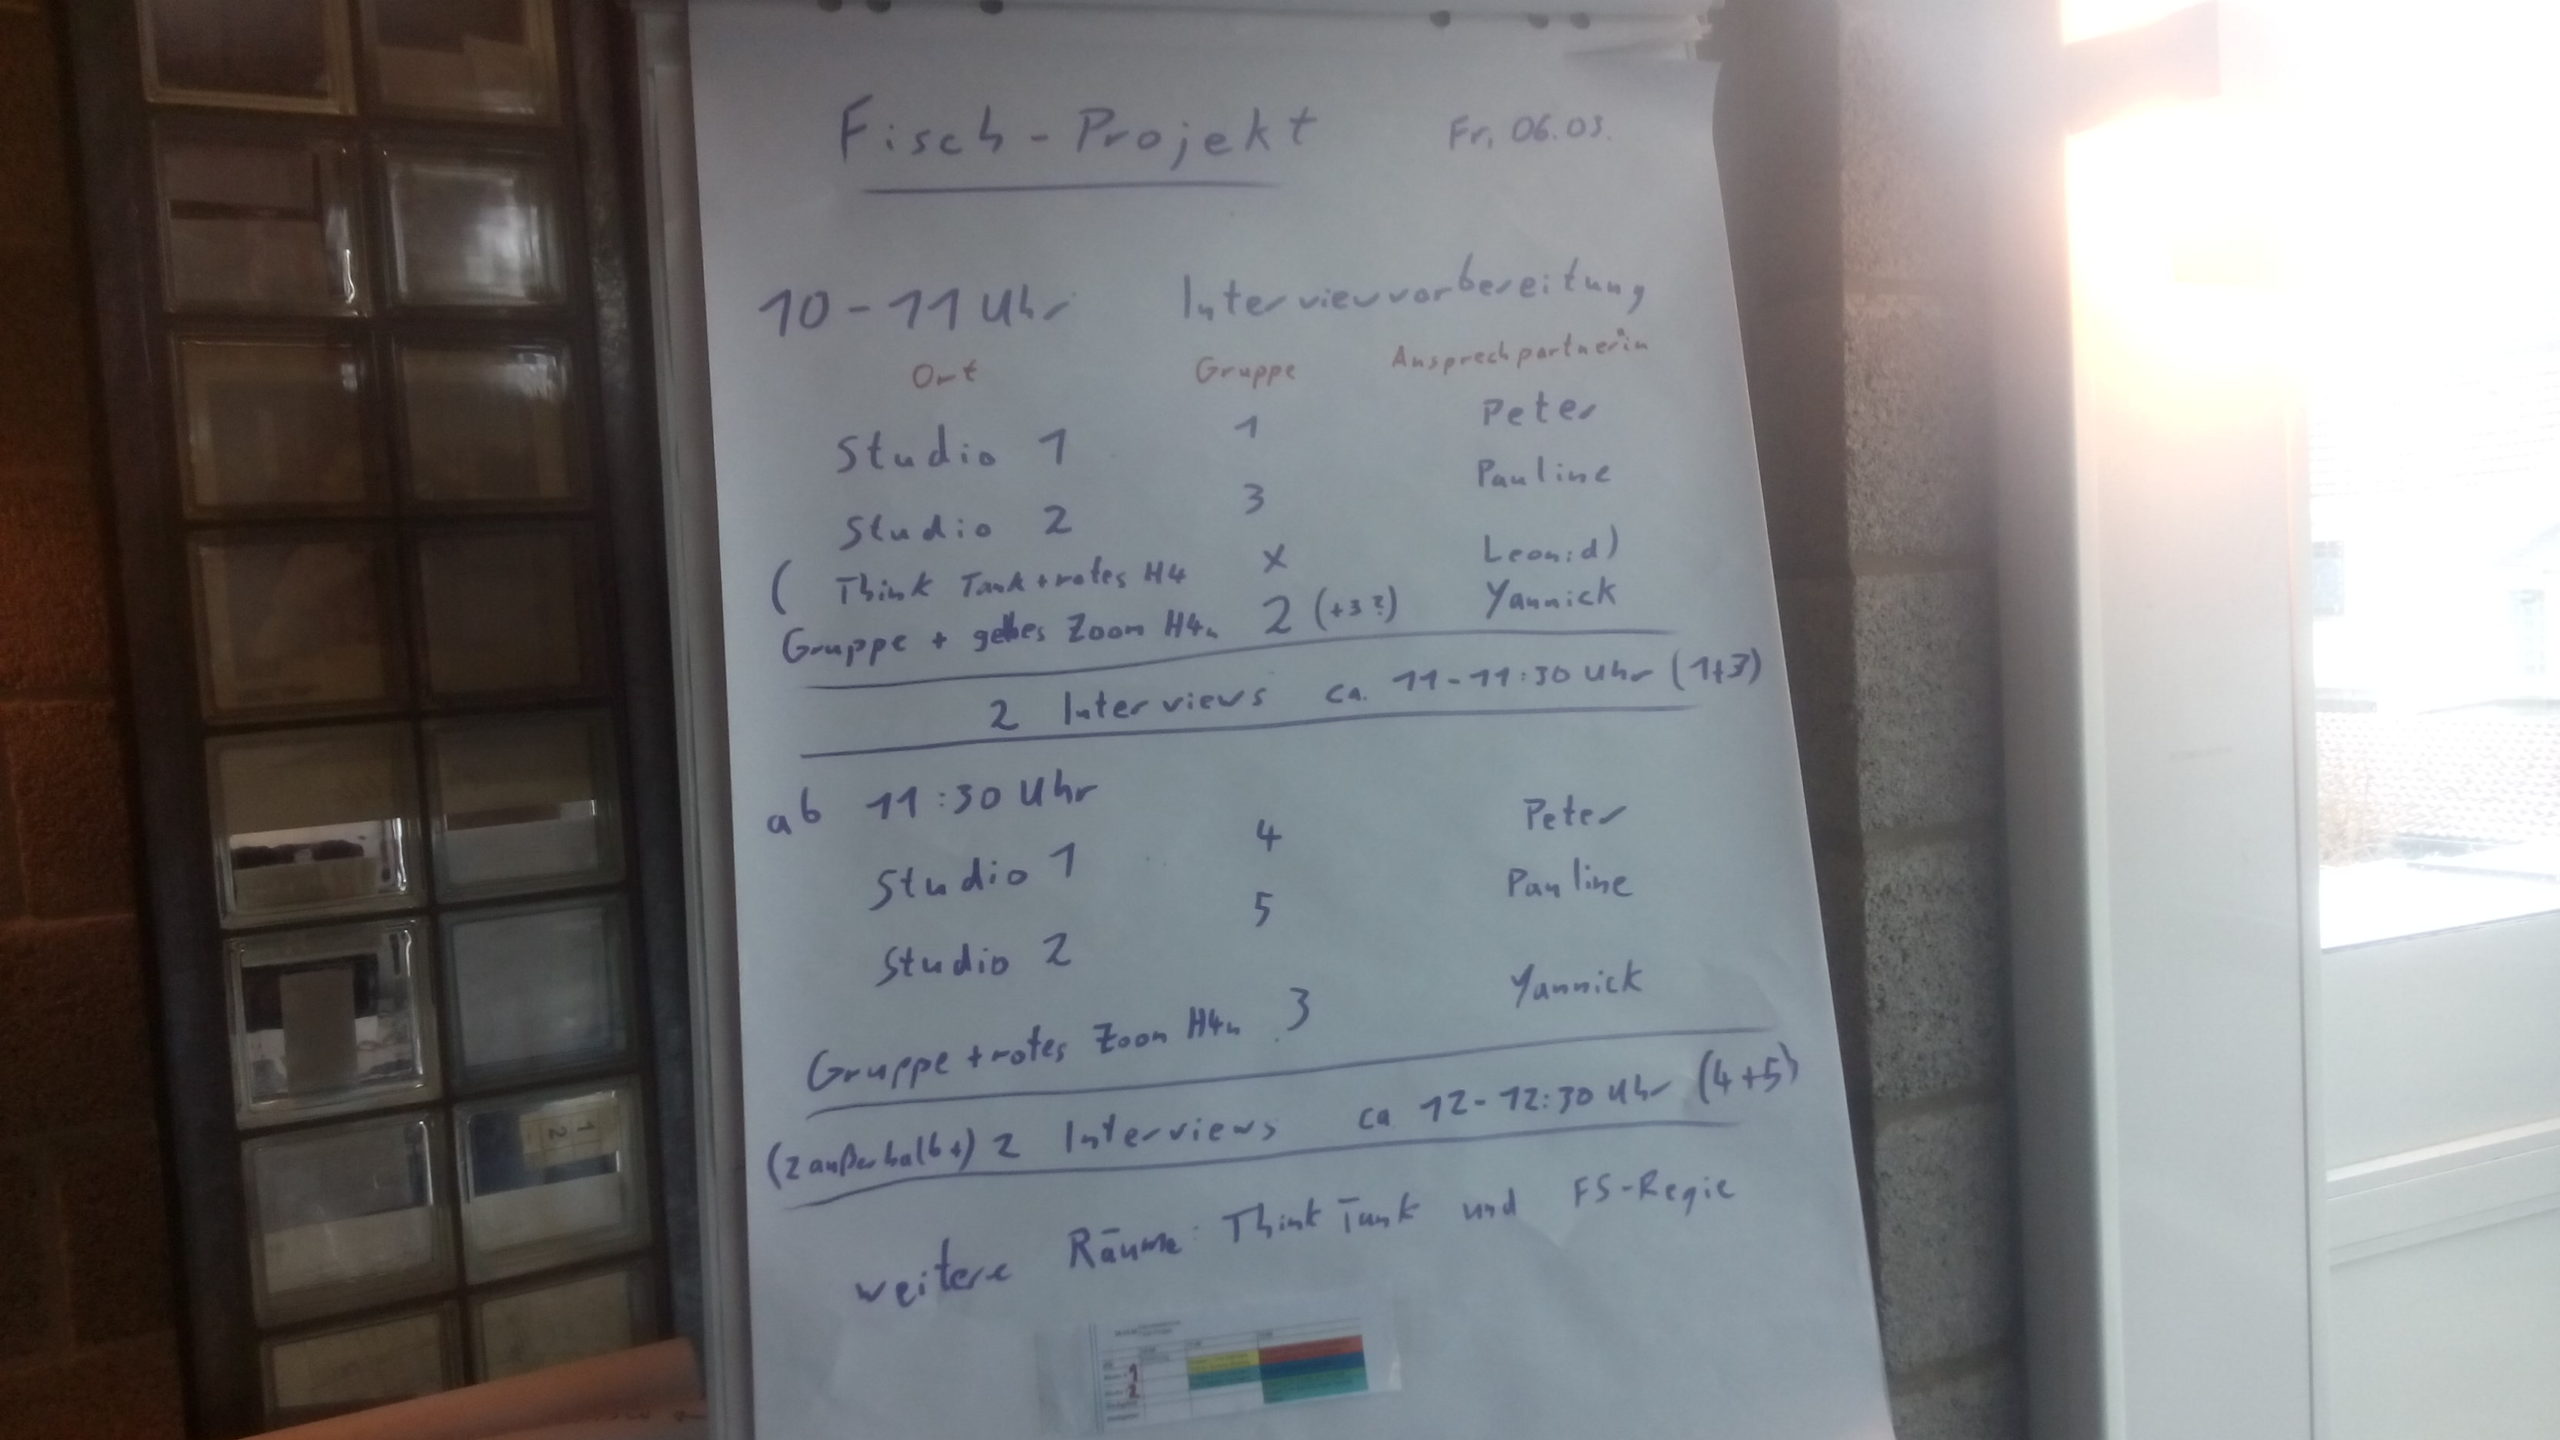 Fisch-Projekt Fr, 06.03.
10-11 Uhr Interviewvorbereitung
Ort Gruppe Ansprechpartnerin
Studio 1 1 Peter
Studio 2 3 Pauline
( Think Tank + rotes H4 x Leonid)
Gruppe + gelbes Zoom H4n 2 (+3?) Yannick
2 Interviews ca. 11-11:30 Uhr (1+3)
ab 11:30 Uhr
Studio 1 4 Peter
Studio 2 5 Pauline
Gruppe + rotes Zoom H4n 3 Yannick
(2 außerhalb+) 2 Interviews ca 12-12:30 Uhr (4+5)
weitere Räume: Think Tank und FS-Regie
1
2